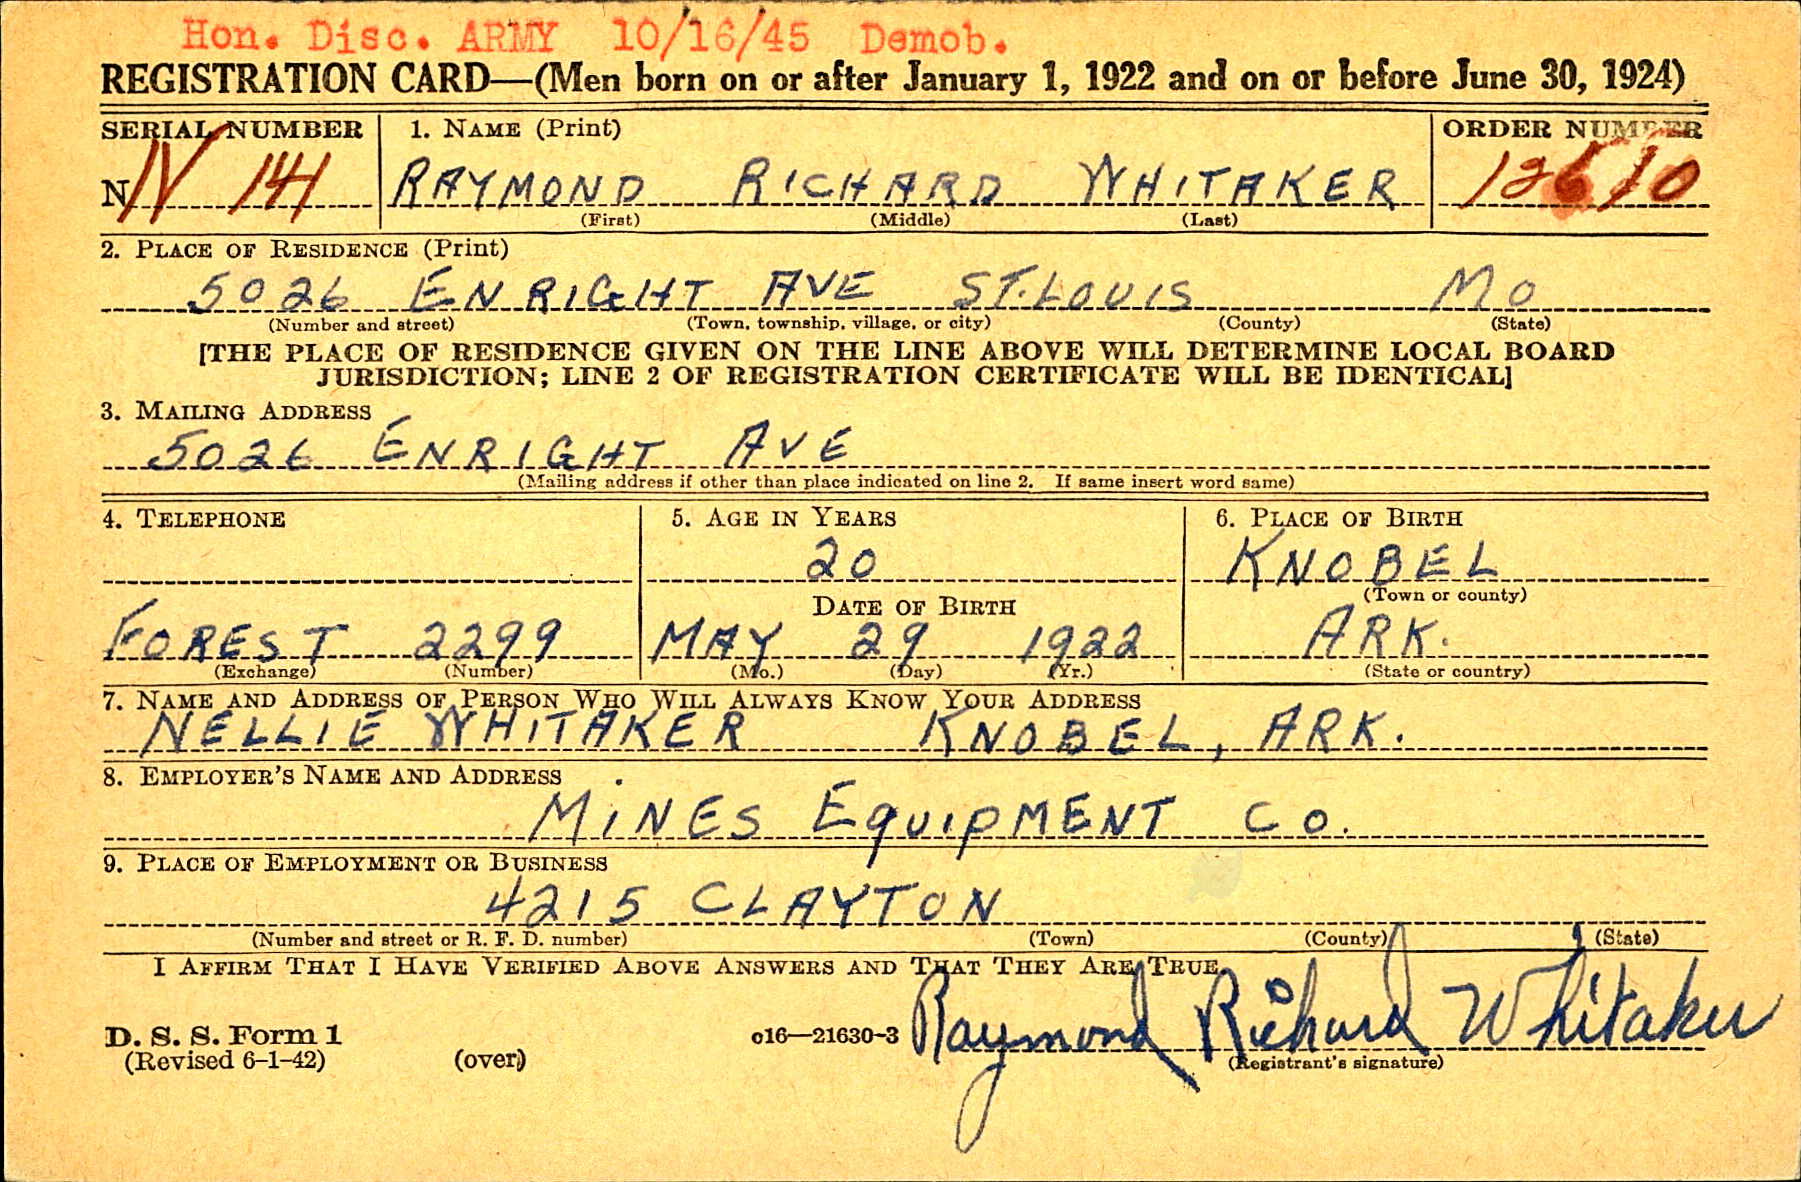 Hon. Disc. ARMY 10/16/45 Demob.
REGISTRATION CARD—(Men born on or after January 1, 1922 and on or before June 30, 1924)
SERIAL NUMBER 1. NAME (Print) ORDER NUMBER
N 141 RAYMOND RICHARD WHITAKER 12610
(First) (Middle) (Last)
2. PLACE OF RESIDENCE (Print)
5026 ENRIGHT AVE ST. LOUIS MO
(Number and street) (Town, township, village, or city) (County) (State)
[THE PLACE OF RESIDENCE GIVEN ON THE LINE ABOVE WILL DETERMINE LOCAL BOARD
JURISDICTION; LINE 2 OF REGISTRATION CERTIFICATE WILL BE IDENTICAL]
3. MAILING ADDRESS
5026 ENRIGHT AVE
(Mailing address if other than place indicated on line 2. If same insert word same)
4. TELEPHONE 5. AGE IN YEARS 6. PLACE OF BIRTH
20 KNOBEL
(Town or county)
DATE OF BIRTH
FOREST 2299 MAY 29 1922 ARK.
(Exchange) (Number) (Mo.) (Day) (Yr.) (State or country)
7. NAME AND ADDRESS OF PERSON WHO WILL ALWAYS KNOW YOUR ADDRESS
NELLIE WHITAKER KNOBEL, ARK.
8. EMPLOYER'S NAME AND ADDRESS
MINES EQUIPMENT CO.
9. PLACE OF EMPLOYMENT OR BUSINESS
4215 CLAYTON
(Number and street or R. F. D. number) (Town) (County) (State)
I AFFIRM THAT I HAVE VERIFIED ABOVE ANSWERS AND THAT THEY ARE TRUE
Raymond Richard Whitaker
D. S. S. Form 1 c16—21630-3
(Revised 6-1-42) (over) (Registrant's signature)